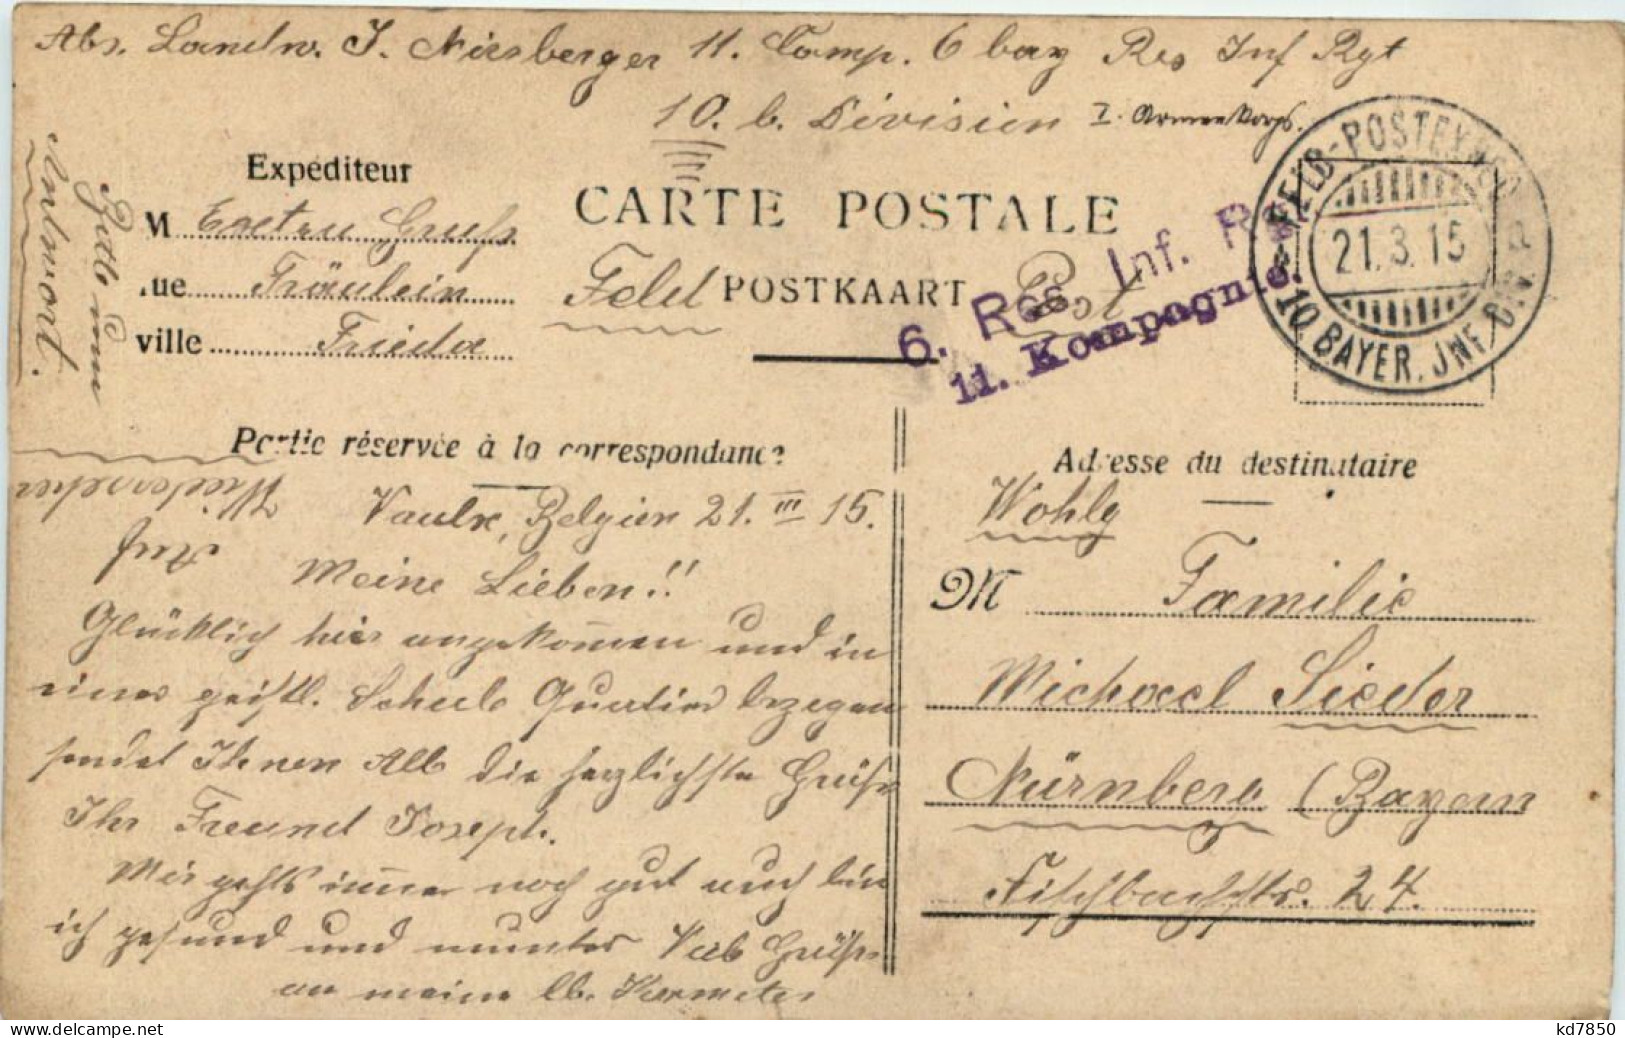 Abs. Landw. J. Nirsberger 11. Comp. 6 bay Res Inf Rgt
10. b. Division I. Armee Korps.
Expéditeur
CARTE POSTALE
M Extra Gruß
rue Fräulein
ville Frieda
Feld POSTKAART Post
6. Res. Inf. R
11. Kompagnie.
FELD-POSTEXPED.
21.3.15
10. BAYER. JNF. DIV.
Bitte um
Antwort.
Partie réservée à la correspondance
Adresse du destinataire
Auf
Wiedersehen
Belgien 21. III 15.
Meine Lieben!!
Glücklich hier angekommen und in
einer geistl. Schule Quartier bezogen
sendet Ihnen All die herzlichste Grüße
Ihr Freund Joseph.
Mir gehts immer noch gut auch bin
ich gesund und munter Grüße
an meine lb.
Wohlg
M Familie
Michael Sieder
Nürnberg (Bayern
Fischbachstr. 24.
delcampe.net
kd7850